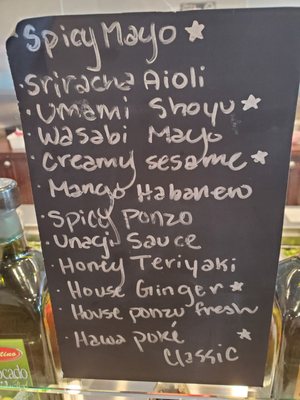 Spicy Mayo ☆
· Sriracha Aioli
· Umami Shoyu ☆
· Wasabi Mayo
· Creamy sesame ☆
· Mango Habanero
· Spicy Ponzo
· Unagi Sauce
· Honey Teriyaki
· House Ginger ☆
· House ponzu fresh
· Hawa Poké ☆
Classic
ocado